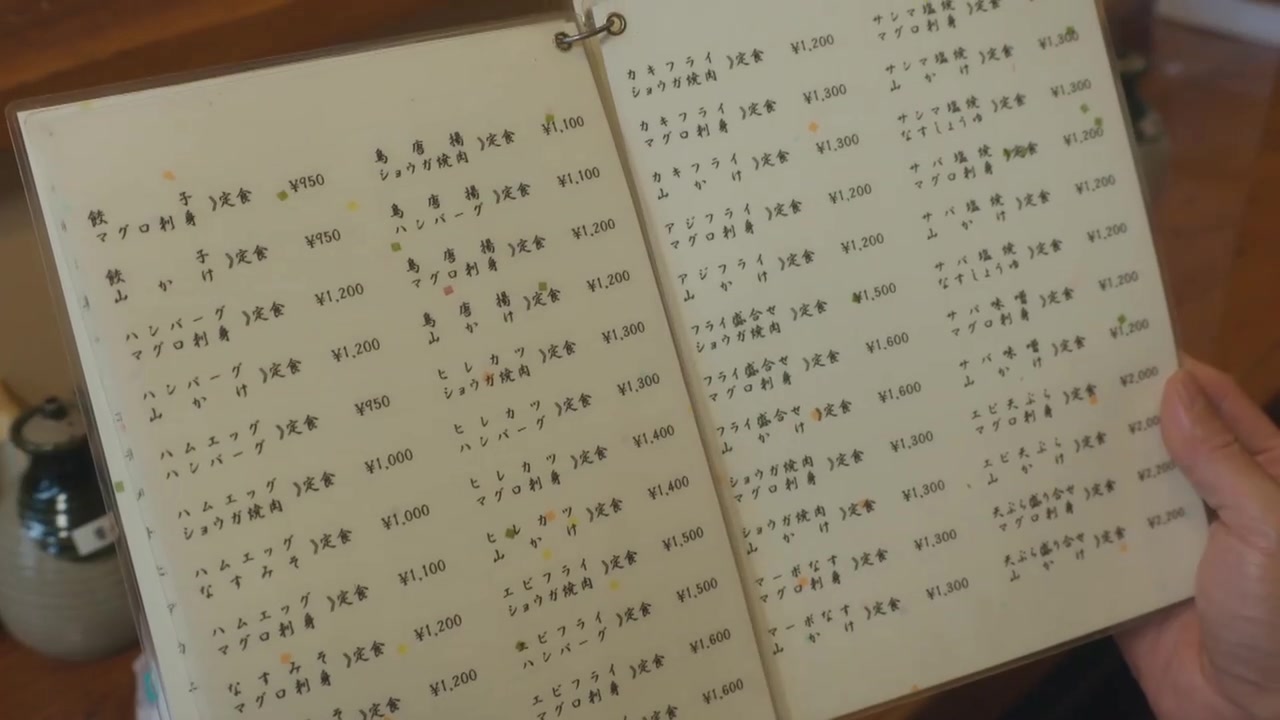 餃子
マグロ刺身 }定食 ¥950
餃子
山かけ }定食 ¥950
ハンバーグ
マグロ刺身 }定食 ¥1,200
ハンバーグ
山かけ }定食 ¥1,200
ハムエッグ
ハンバーグ }定食 ¥950
ハムエッグ
ショウガ焼肉 }定食 ¥1,000
ハムエッグ
なすみそ }定食 ¥1,000
ハムエッグ
マグロ刺身 }定食 ¥1,100
なすみそ
マグロ刺身 }定食 ¥1,200
なすみそ }定食 ¥1,200
鳥唐揚
ショウガ焼肉 }定食 ¥1,100
鳥唐揚
ハンバーグ }定食 ¥1,100
鳥唐揚
マグロ刺身 }定食 ¥1,200
鳥唐揚
山かけ }定食 ¥1,200
ヒレカツ
ショウガ焼肉 }定食 ¥1,300
ヒレカツ
ハンバーグ }定食 ¥1,300
ヒレカツ
マグロ刺身 }定食 ¥1,400
ヒレカツ
山かけ }定食 ¥1,400
エビフライ
ショウガ焼肉 }定食 ¥1,500
エビフライ
ハンバーグ }定食 ¥1,500
エビフライ
マグロ刺身 }定食 ¥1,600
定食 ¥1,600
カキフライ
ショウガ焼肉 }定食 ¥1,200
カキフライ
マグロ刺身 }定食 ¥1,300
カキフライ
山かけ }定食 ¥1,300
アジフライ
マグロ刺身 }定食 ¥1,200
アジフライ
山かけ }定食 ¥1,200
フライ盛合せ
ショウガ焼肉 }定食 ¥1,500
フライ盛合せ
マグロ刺身 }定食 ¥1,600
フライ盛合せ
山かけ }定食 ¥1,600
ショウガ焼肉
マグロ刺身 }定食 ¥1,300
ショウガ焼肉
山かけ }定食 ¥1,300
マーボなす
マグロ刺身 }定食 ¥1,300
マーボなす
山かけ }定食 ¥1,300
サンマ塩焼
マグロ刺身 }定食
サンマ塩焼
山かけ }定食 ¥1,300
サンマ塩焼
なすしょうゆ }定食 ¥1,300
サバ塩焼
マグロ刺身 }定食 ¥1,200
サバ塩焼
山かけ }定食 ¥1,200
サバ塩焼
なすしょうゆ }定食 ¥1,200
サバ味噌
マグロ刺身 }定食 ¥1,200
サバ味噌
山かけ }定食 ¥1,200
エビ天ぷら
マグロ刺身 }定食 ¥2,000
エビ天ぷら
山かけ }定食 ¥2,000
天ぷら盛り合せ
マグロ刺身 }定食 ¥2,200
天ぷら盛り合せ
山かけ }定食 ¥2,200